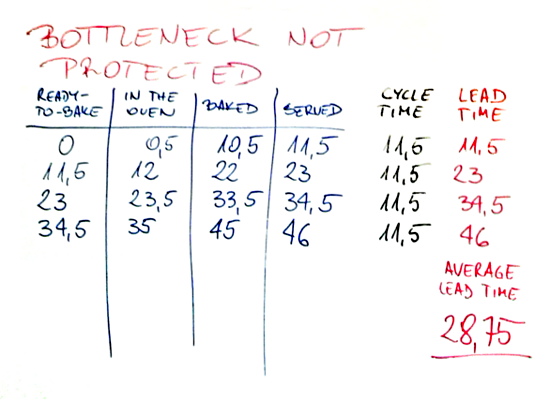 BOTTLENECK NOT
PROTECTED
READY-TO-BAKE IN THE OVEN BAKED SERVED CYCLE TIME LEAD TIME
0 0,5 10,5 11,5 11,5 11,5
11,5 12 22 23 11,5 23
23 23,5 33,5 34,5 11,5 34,5
34,5 35 45 46 11,5 46
AVERAGE
LEAD TIME
28,75